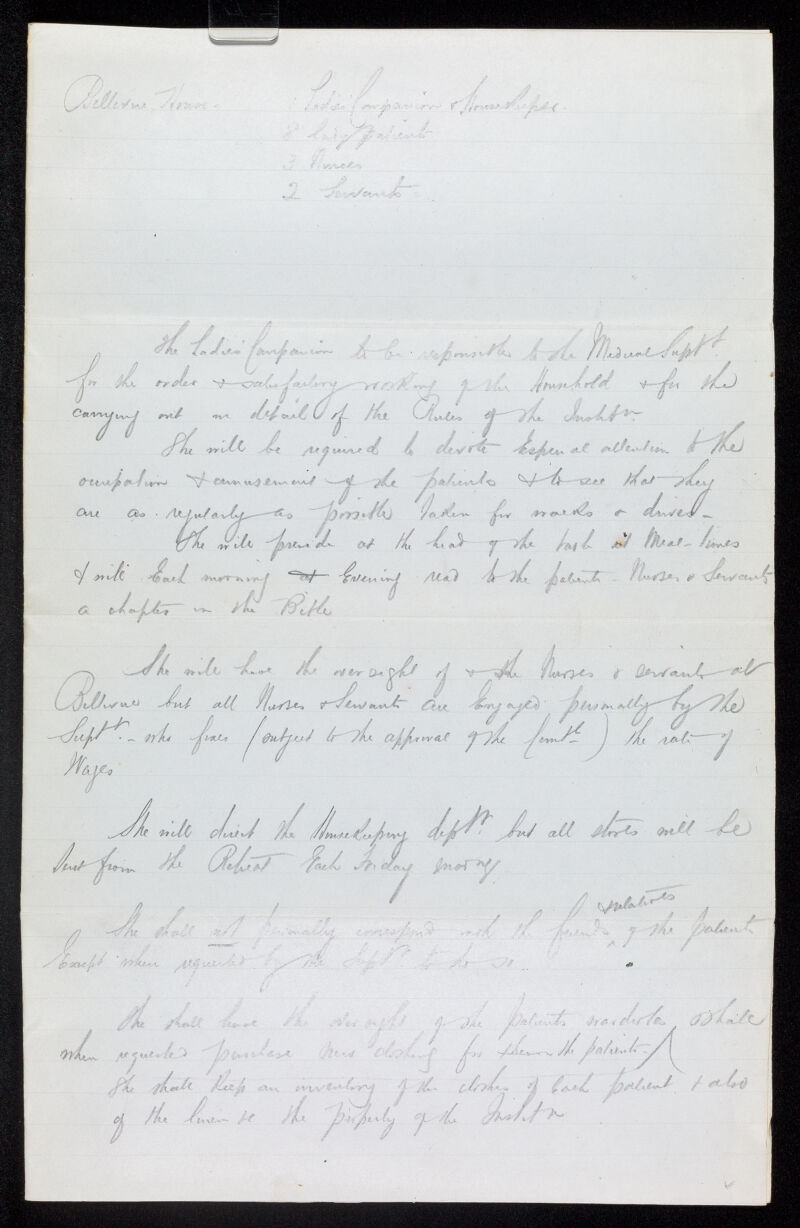 Bellevue House - 1 Ladies Companion & Housekeeper.
8 lady patients
3 Nurses
2 Servants
The Ladies Companion to be responsible to the Medical Supt.
for the order & satisfactory working of the Household & for the
carrying out in detail of the Rules of the Institn.
She will be required to devote Especial attention to the
occupation & amusement of the patients & to see that they
are as regularly as possible taken for walks & drives -
She will preside at the head of the table at Meal-times
& will Each morning at Evening read to the patients - Nurses & Servants
a chapter in the Bible
She will have the oversight of & the Nurses & servants at
Bellevue but all Nurses & Servants are Engaged personally by the
Supt. - who fixes (subject to the approval of the Comtte) the rate of
Wages
She will direct the Housekeeping deptt. but all stores will be
sent from the Retreat Each Friday morng.
& relatives
She shall not personally correspond with the friends of the patients
Except when requested by the Supt. to do so.
She shall have the oversight of the patients wardrobes & shall
when requested purchase new clothing for them the patients -
She shall keep an inventory of the clothes of Each patient & also
of the linen &c the property of the Institn